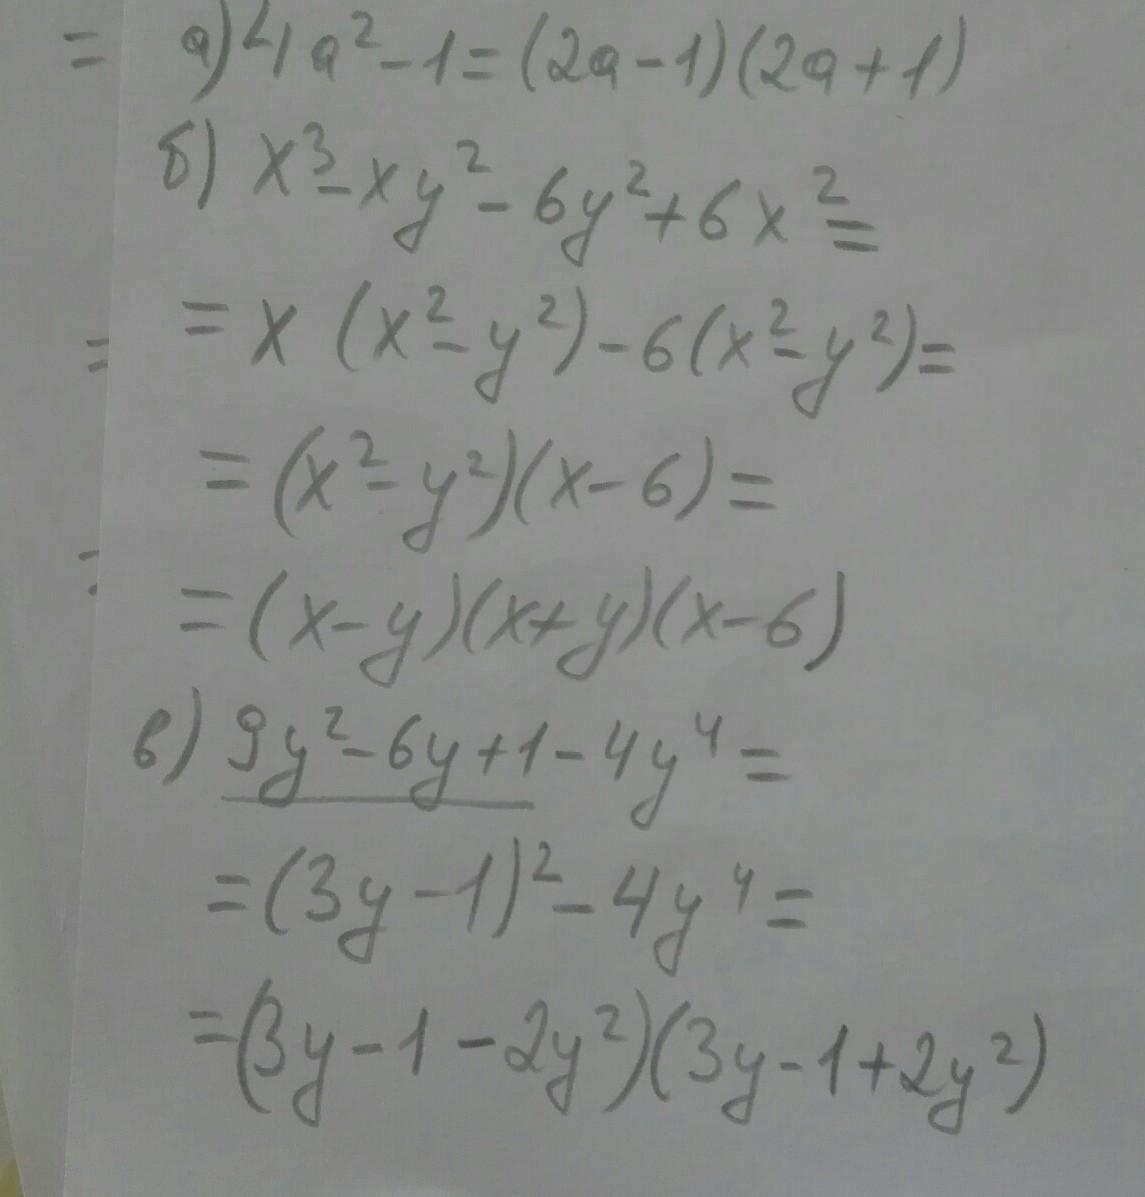 = а) 4a² - 1 = (2a - 1)(2a + 1)
б) x³ - xy² - 6y² + 6x² =
= x (x² - y²) - 6(x² - y²) =
= (x² - y²)(x - 6) =
= (x - y)(x + y)(x - 6)
в) 9y² - 6y + 1 - 4y⁴ =
= (3y - 1)² - 4y⁴ =
= (3y - 1 - 2y²)(3y - 1 + 2y²)